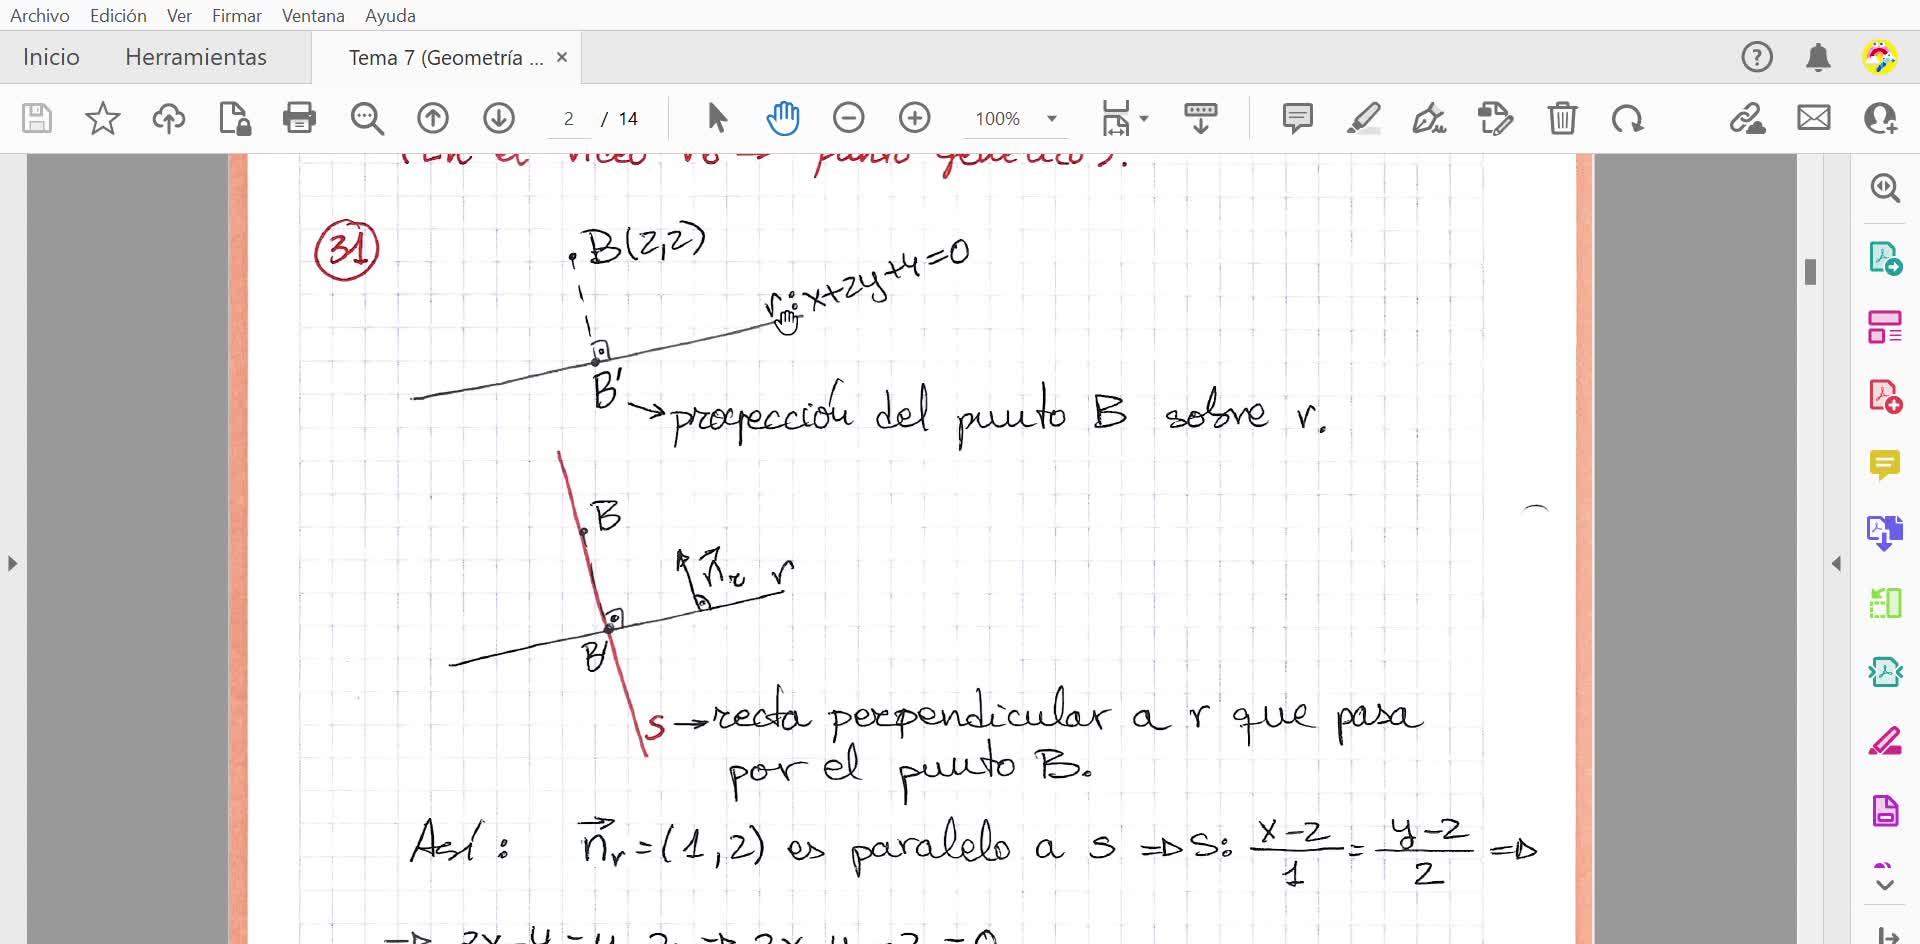 Archivo Edición Ver Firmar Ventana Ayuda
Inicio Herramientas Tema 7 (Geometría ... ×
2 / 14 100%
punto genérico s.
31
B(2,2)
r: x+2y+4=0
B'
→ proyección del punto B sobre r.
B
n⃗r r
B'
s → recta perpendicular a r que pasa
por el punto B.
Así: n⃗r = (1,2) es paralelo a s ⇒ s: (x-2)/1 = (y-2)/2 ⇒
⇒ 2x-4=y-2 ⇒ 2x-y-2=0